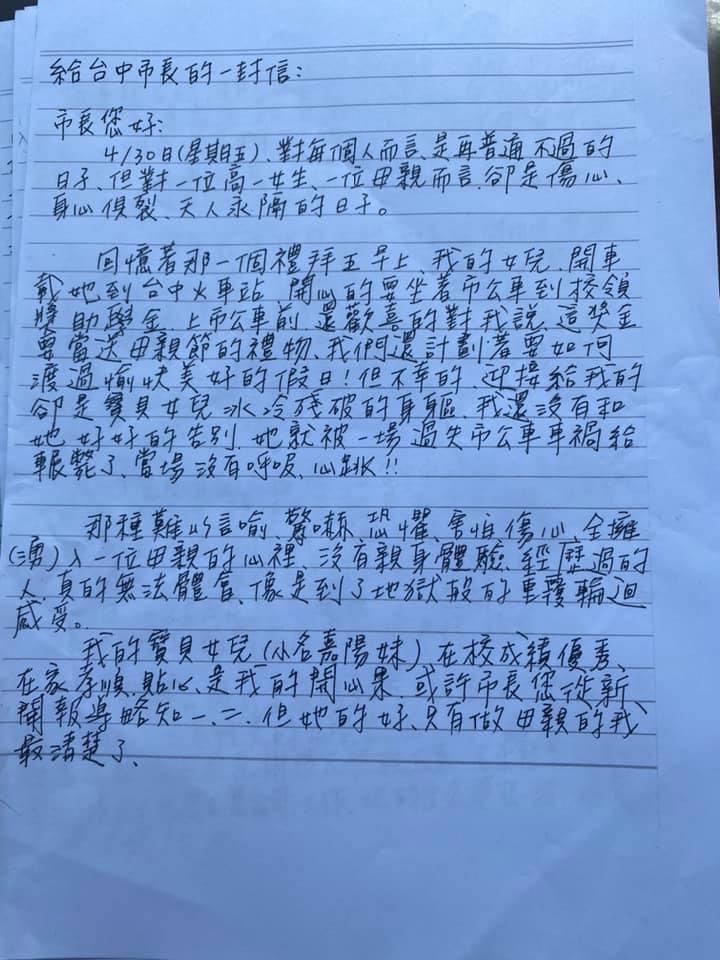 給台中市長的一封信:
市長您好:
4/30日(星期五)、對每個人而言、是再普通不過的
日子、但對一位高一女生、一位母親而言.卻是傷心、
身心俱裂、天人永隔的日子。
回憶著那一個禮拜五早上、我的女兒.開車
載她到台中火車站.開心的要坐著市公車到校領
獎助學金.上市公車前.還歡喜的對我說.這獎金
要當送母親節的禮物、我們還計劃著要如何
渡過愉快美好的假日!但不幸的.迎接給我的
卻是寶貝女兒冰冷殘破的身軀.我還沒有和
她好好的告別.她就被一場過失市公車車禍給
輾斃了、當場沒有呼吸、心跳!!
那種難以言喻、驚嚇、恐懼、害怕傷心、全擁
(湧)入一位母親的心裡、沒有親身體驗、經歷過的
人.真的無法體會、像是到了地獄般的重覆輪迴
感受。
我的寶貝女兒(小名嘉陽妹)、在校成績優秀、
在家孝順、貼心、是我的開心果.或許市長您從新
聞報導略知一、二、但她的好、只有做母親的我、
最清楚了、